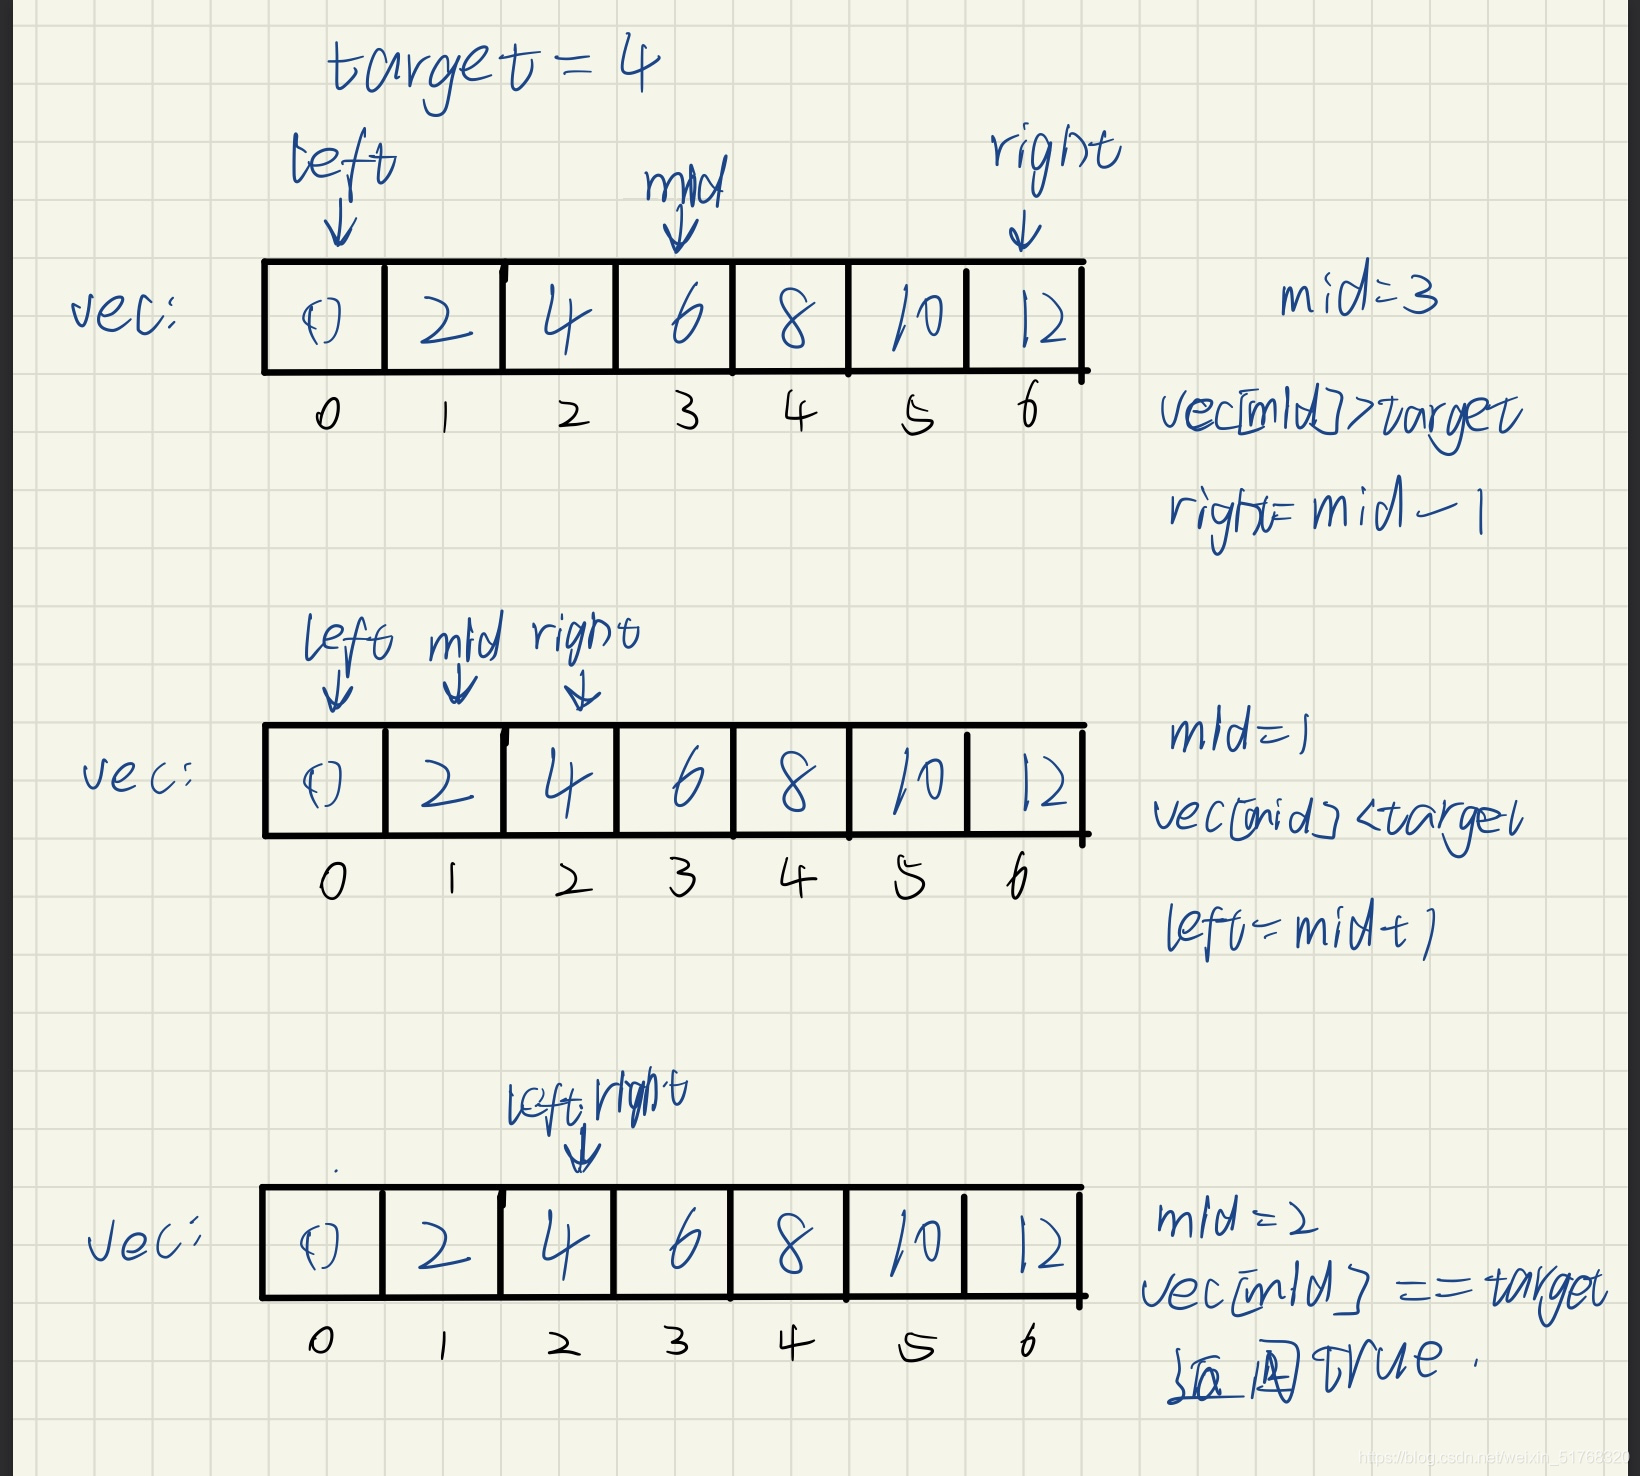 target = 4
left mid right
vec: 0 2 4 6 8 10 12
0 1 2 3 4 5 6
mid=3
vec[mid]>target
right=mid-1
left mid right
vec: 0 2 4 6 8 10 12
0 1 2 3 4 5 6
mid=1
vec[mid]<target
left=mid+1
left.right
vec: 0 2 4 6 8 10 12
0 1 2 3 4 5 6
mid=2
vec[mid]==target
返回true.
https://blog.csdn.net/weixin_51768320